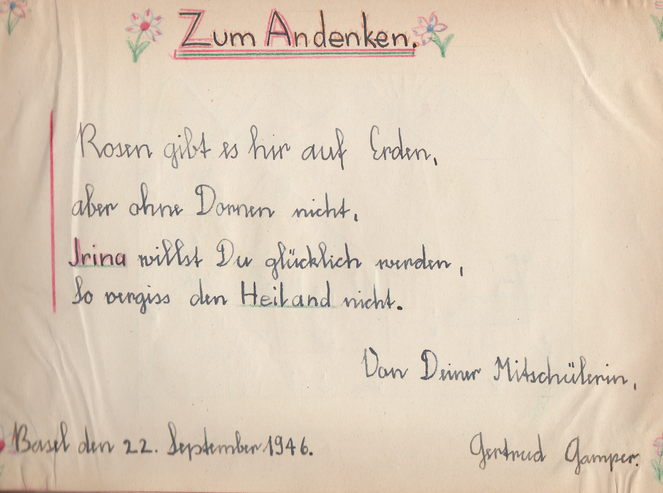 Zum Andenken.
Rosen gibt es hir auf Erden,
aber ohne Dornen nicht,
Irina willst Du glücklich werden,
So vergiss den Heiland nicht.
Von Deiner Mitschülerin,
Basel den 22. September 1946. Gertrud Gamper.